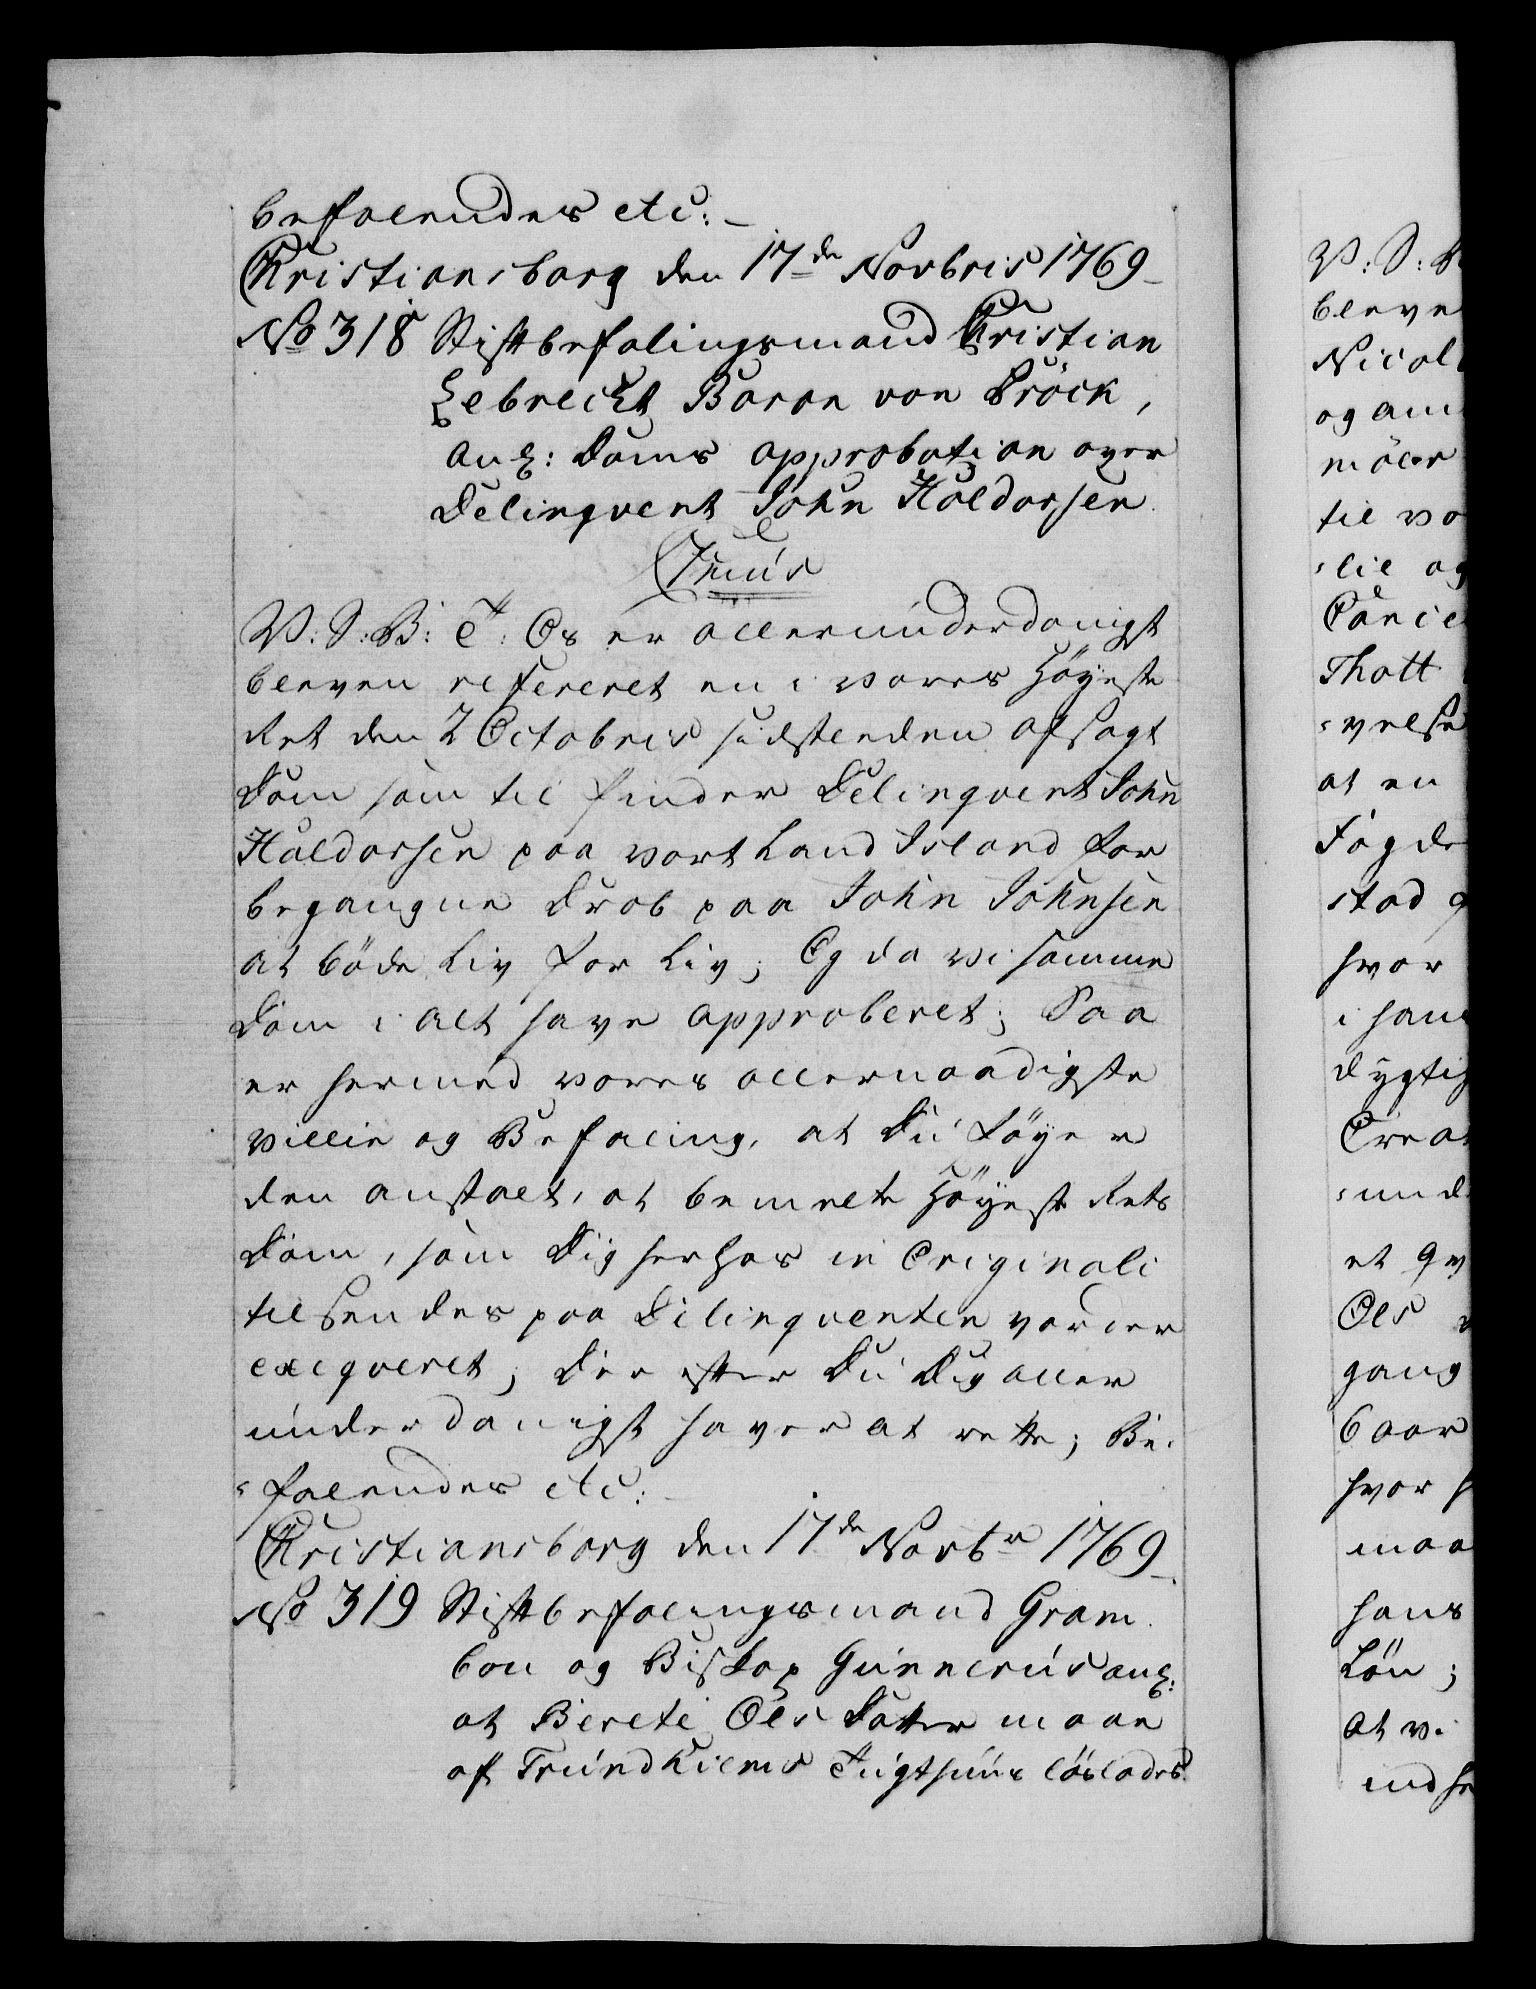 befalendes etc:
Christiansborg den 17de Novbris 1769
No 318 Stiftbefalingsmand Christian
Lebrecht Baron von Pröck,
ang: Doms approbation over
Delinqvent John Haldorsen
V: S: B: T: Os er allerunderdanigst
bleven refereret en i vores Höyeste
Ret den 2 Octobris sidstleeden afsagt
Dom som til finder Delinqvent John
Haldorsen paa vort Land Island for
begangne Drab paa John Johnsen
at böde Liv for Liv; Og da vi samme
Dom i alt have approberet; Saa
er hermed vores allernaadigste
villie og Befaling, at Du föyer
den anstalt, at bemelte Höyeste Rets
Dom, som Dig herhos in Originali
tilsendes paa Dilinqventen vorder
exeqveret; Der efter Du Dig aller
underdanigst haver at rette; Be-
falendes etc:
Christiansborg den 17de Novbr 1769
No 319 Stiftbefalingsmand Gram
bou og Biskop Gunnerus ang:
at Berete Ols Datter maae
af Trundhiems Tugthuus löslades
V: S: B
bleve
Nicol
og am
til vo
lie og
Thott
velse
at en
Fogde
stad
hvor
i hans
dygtig
und
et
Ols
gang
6 aar
hvor
maa
hans
Lön;
At vi
indse